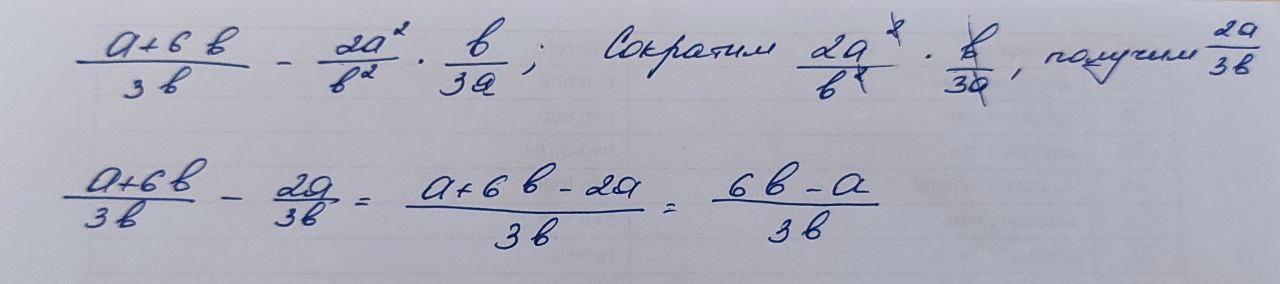 (a+6в)/(3в) - (2a²)/(в²) · (в)/(3a) ; Сократим (2a²)/(в²) · (в)/(3a), получим (2a)/(3в)
(a+6в)/(3в) - (2a)/(3в) = (a+6в-2a)/(3в) = (6в-a)/(3в)